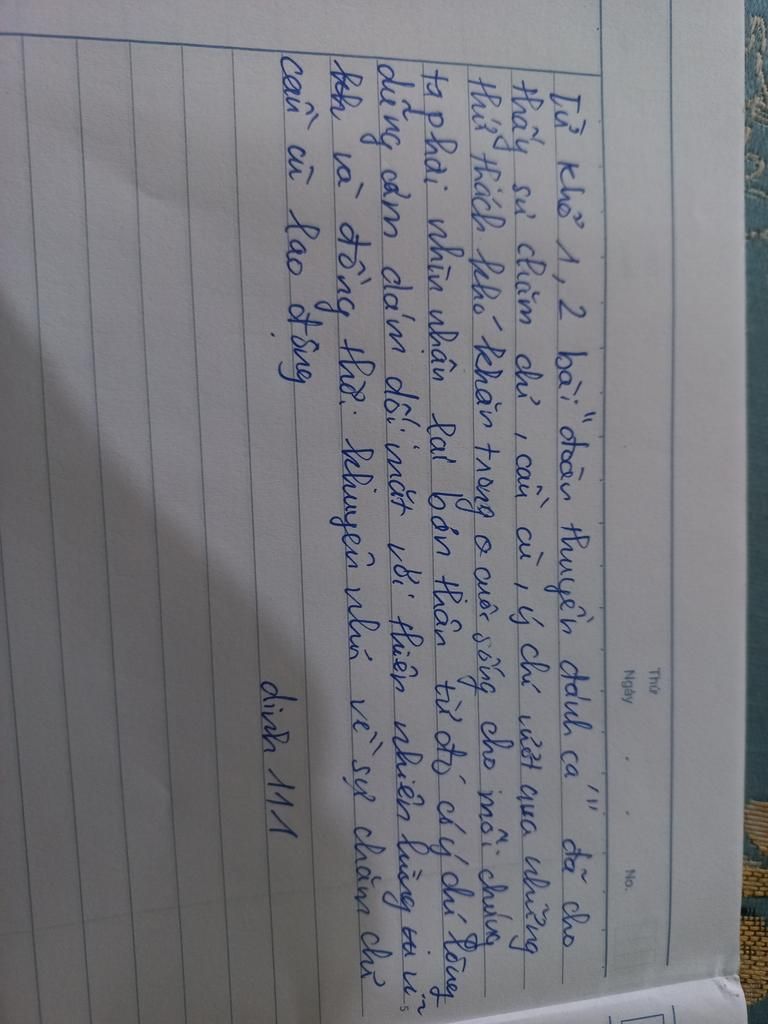 Thứ
Ngày
No.
Từ khổ 1, 2 bài "đoàn thuyền đánh cá" đã cho
thấy sự chăm chỉ, cần cù, ý chí vượt qua những
thử thách khó khăn trong cuôc sống cho mỗi chúng
ta phải nhìn nhận lại bản thân từ đó có ý chí lòng
dũng cảm dám đối mặt với thiên nhiên hùng vĩ
và đồng thời khuyên nhủ về sự chăm chỉ
cần cù lao động
dinh 111
5